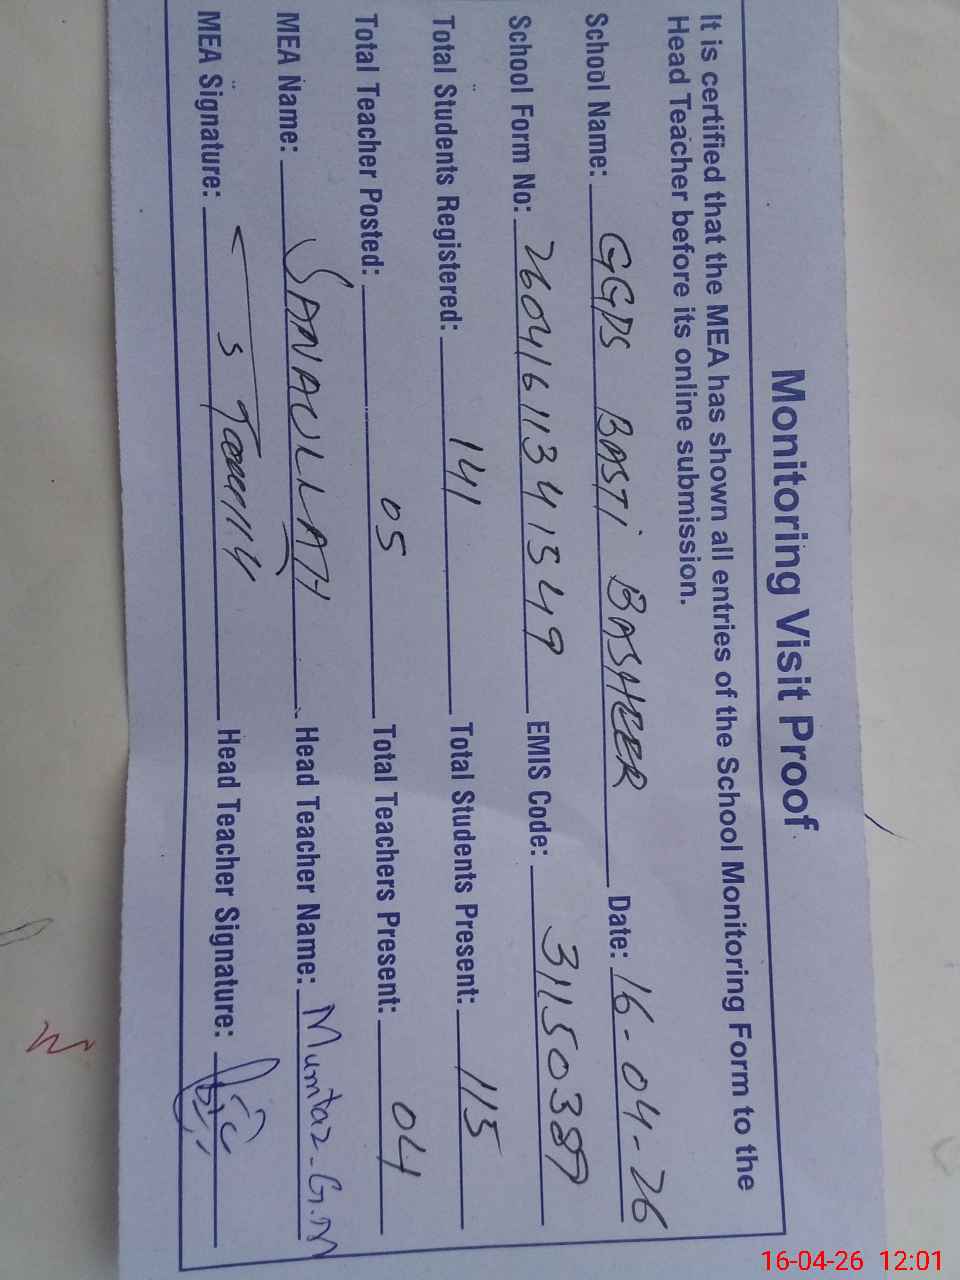 Monitoring Visit Proof
It is certified that the MEA has shown all entries of the School Monitoring Form to the
Head Teacher before its online submission.
School Name: GGPS BASTI BASHEER Date: 16-04-26
School Form No: 26041611341549 EMIS Code: 31150389
Total Students Registered: 141 Total Students Present: 115
Total Teacher Posted: 05 Total Teachers Present: 04
MEA Name: SANAULLAH Head Teacher Name: Mumtaz. G.M
MEA Signature: Head Teacher Signature:
16-04-26 12:01